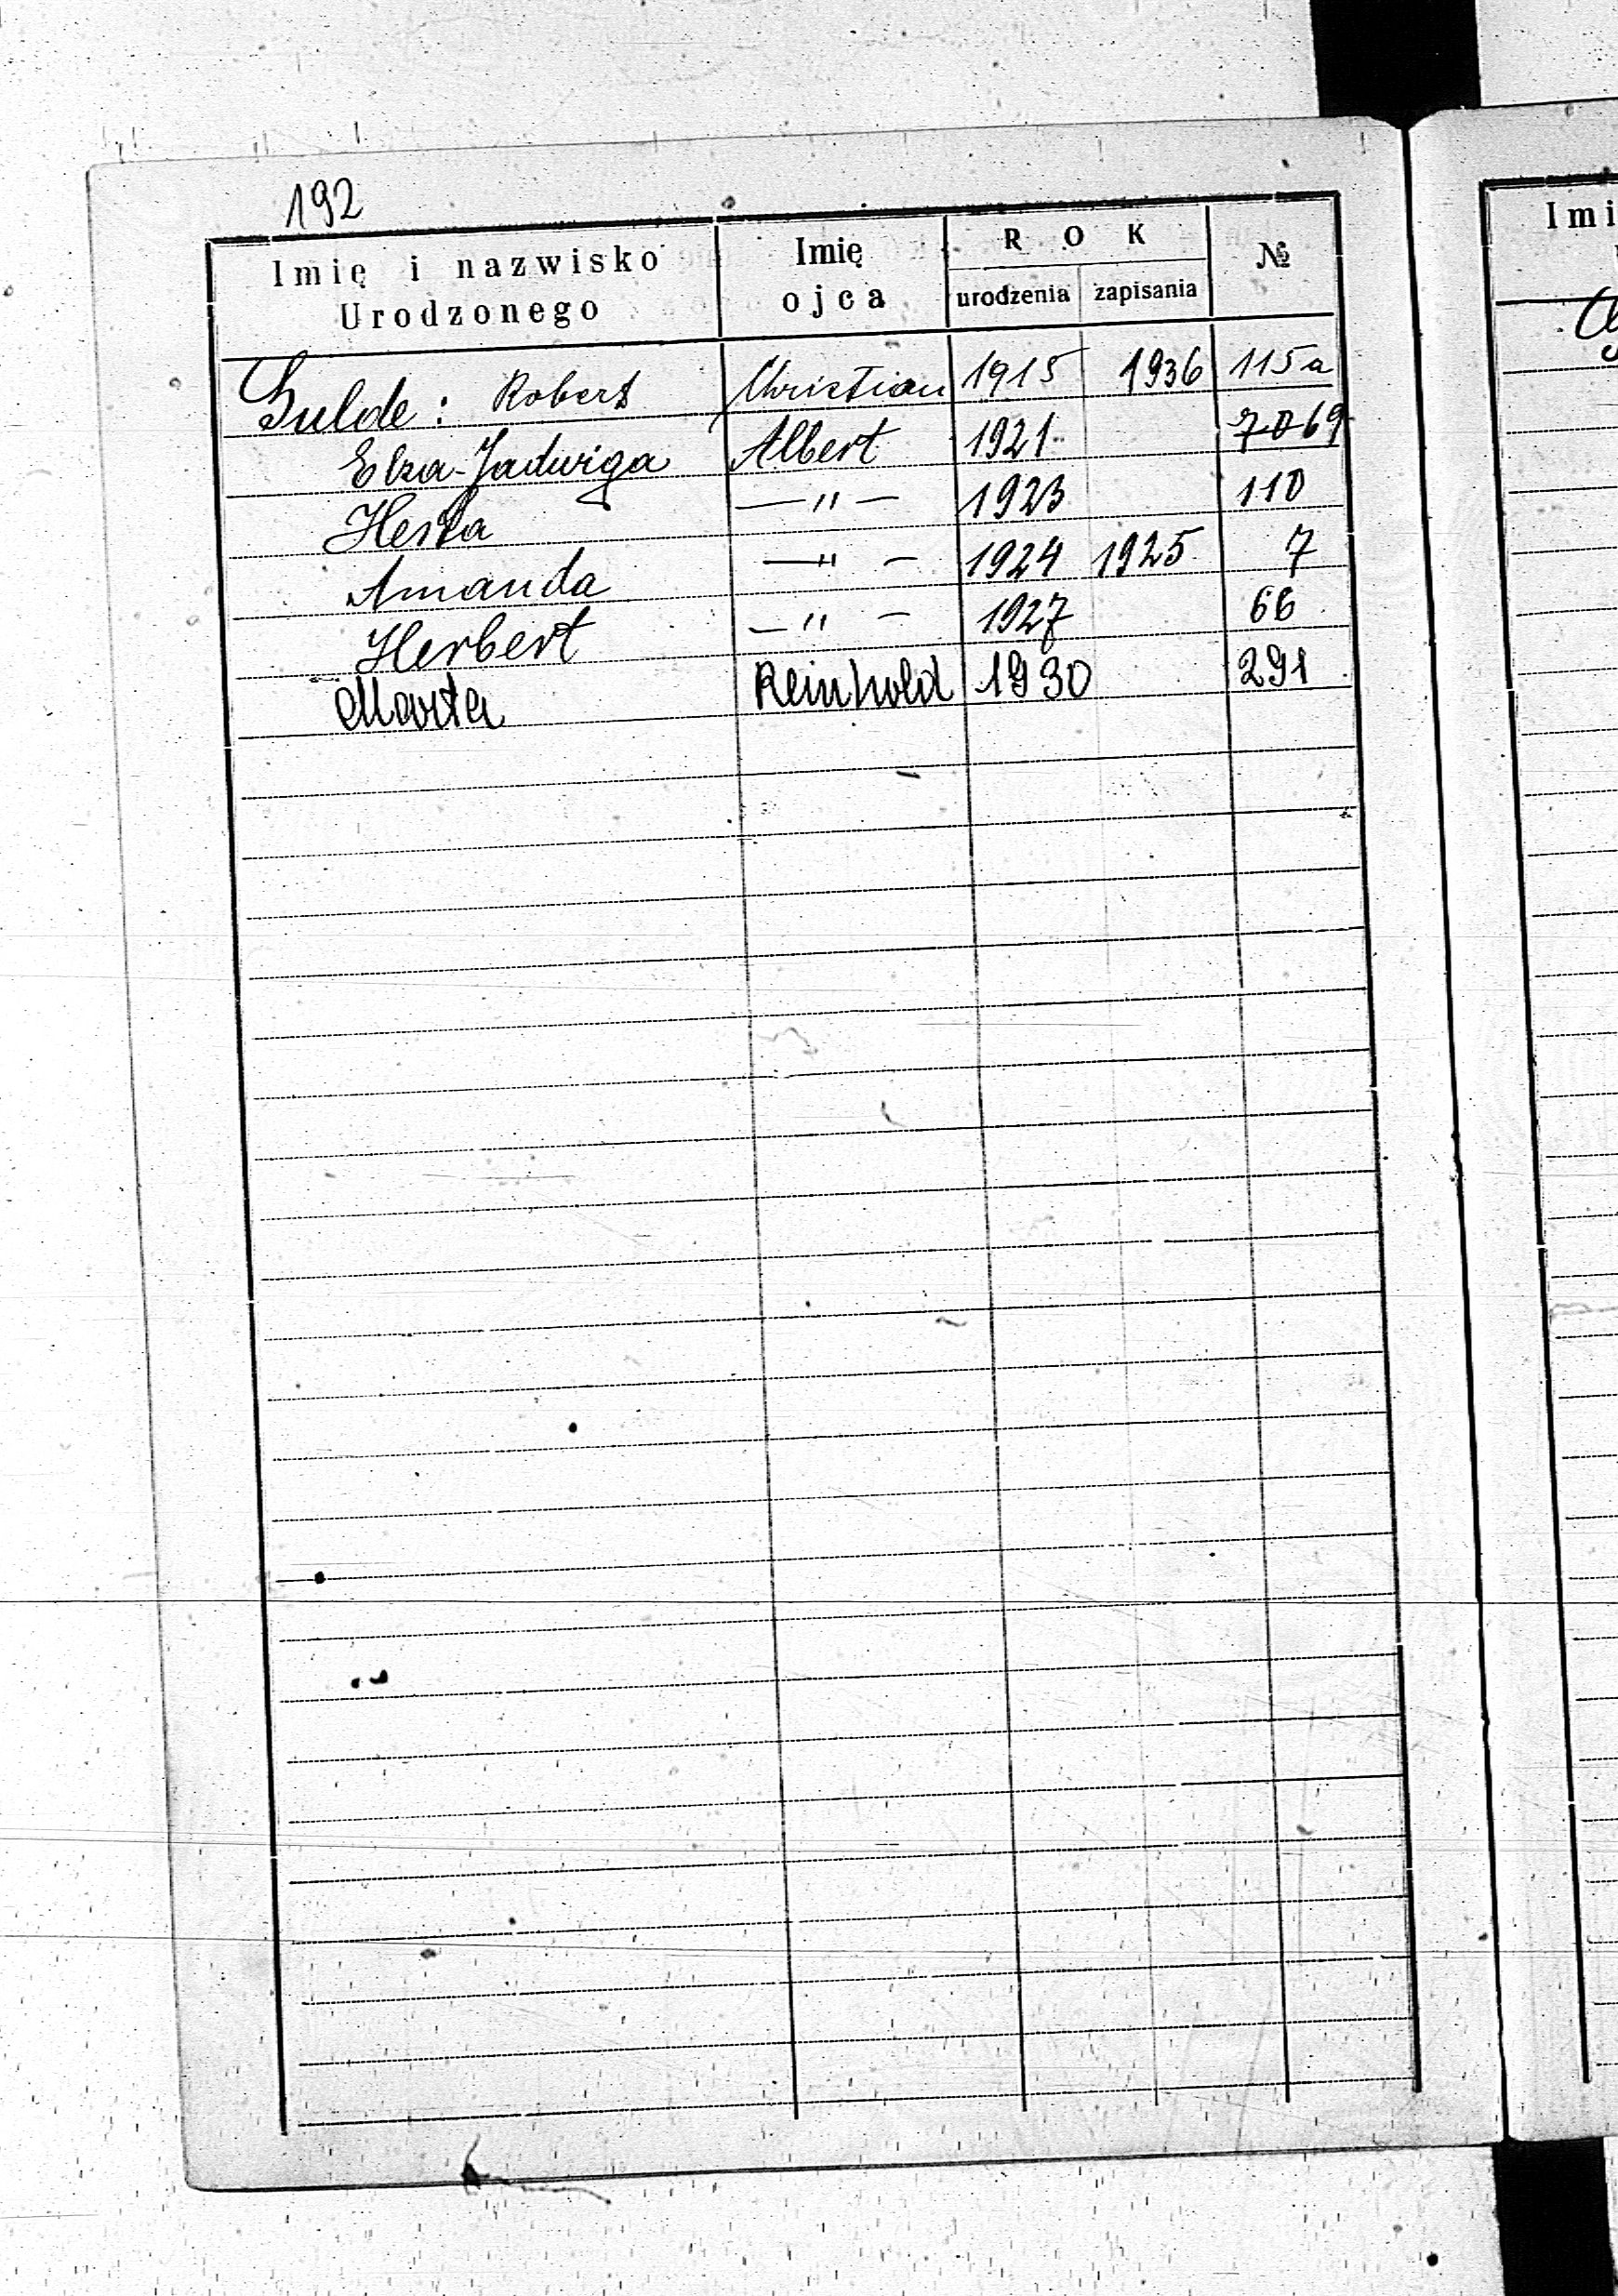 192
Imię i nazwisko Urodzonego
Imię ojca
ROK
urodzenia zapisania
№
Robert Christian 1915 1936 115a
Elza-Jadwiga Albert 1921 69
Herta — " — 1923 110
Amanda — " — 1924 1925 7
Herbert — " — 1927 66
Marta Reinhold 1930 291
Imi